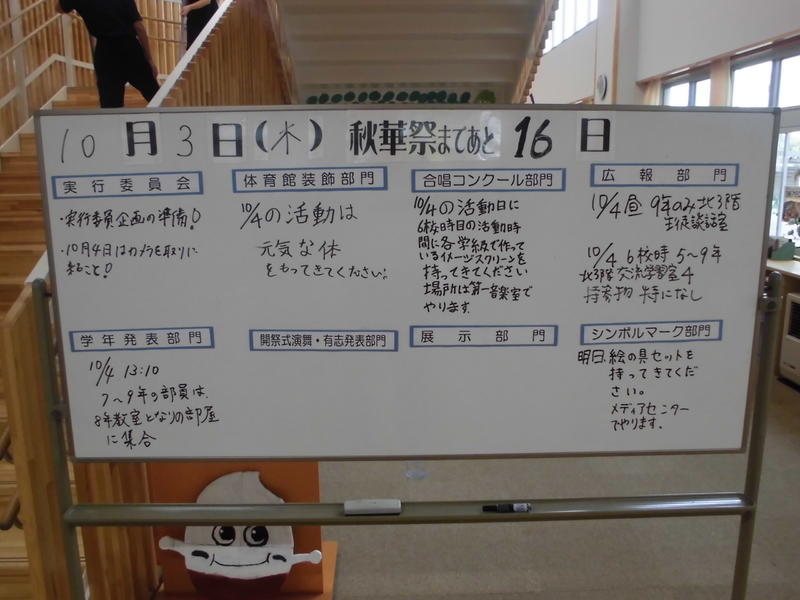 10月3日(木) 秋華祭まであと16日
実行委員会
・実行委員企画の準備!
・10月4日はカメラを取りに
来ること!
体育館装飾部門
10/4の活動は
元気な体
をもってきてください。
合唱コンクール部門
10/4の活動日に
6校時目の活動時
間に各学級で作って
いるイメージスクリーンを
持ってきてください
場所は第一音楽室で
やります。
広報部門
10/4昼 9年のみ北3階
生徒談話室
10/4 6校時 5〜9年
北3階 交流学習室4
持参物 特になし
学年発表部門
10/4 13:10
7〜9年の部員は、
8年教室となりの部屋
に集合
開祭式演舞・有志発表部門
展示部門
シンボルマーク部門
明日、絵の具セットを
持ってきてくだ
さい。
メディアセンター
でやります。